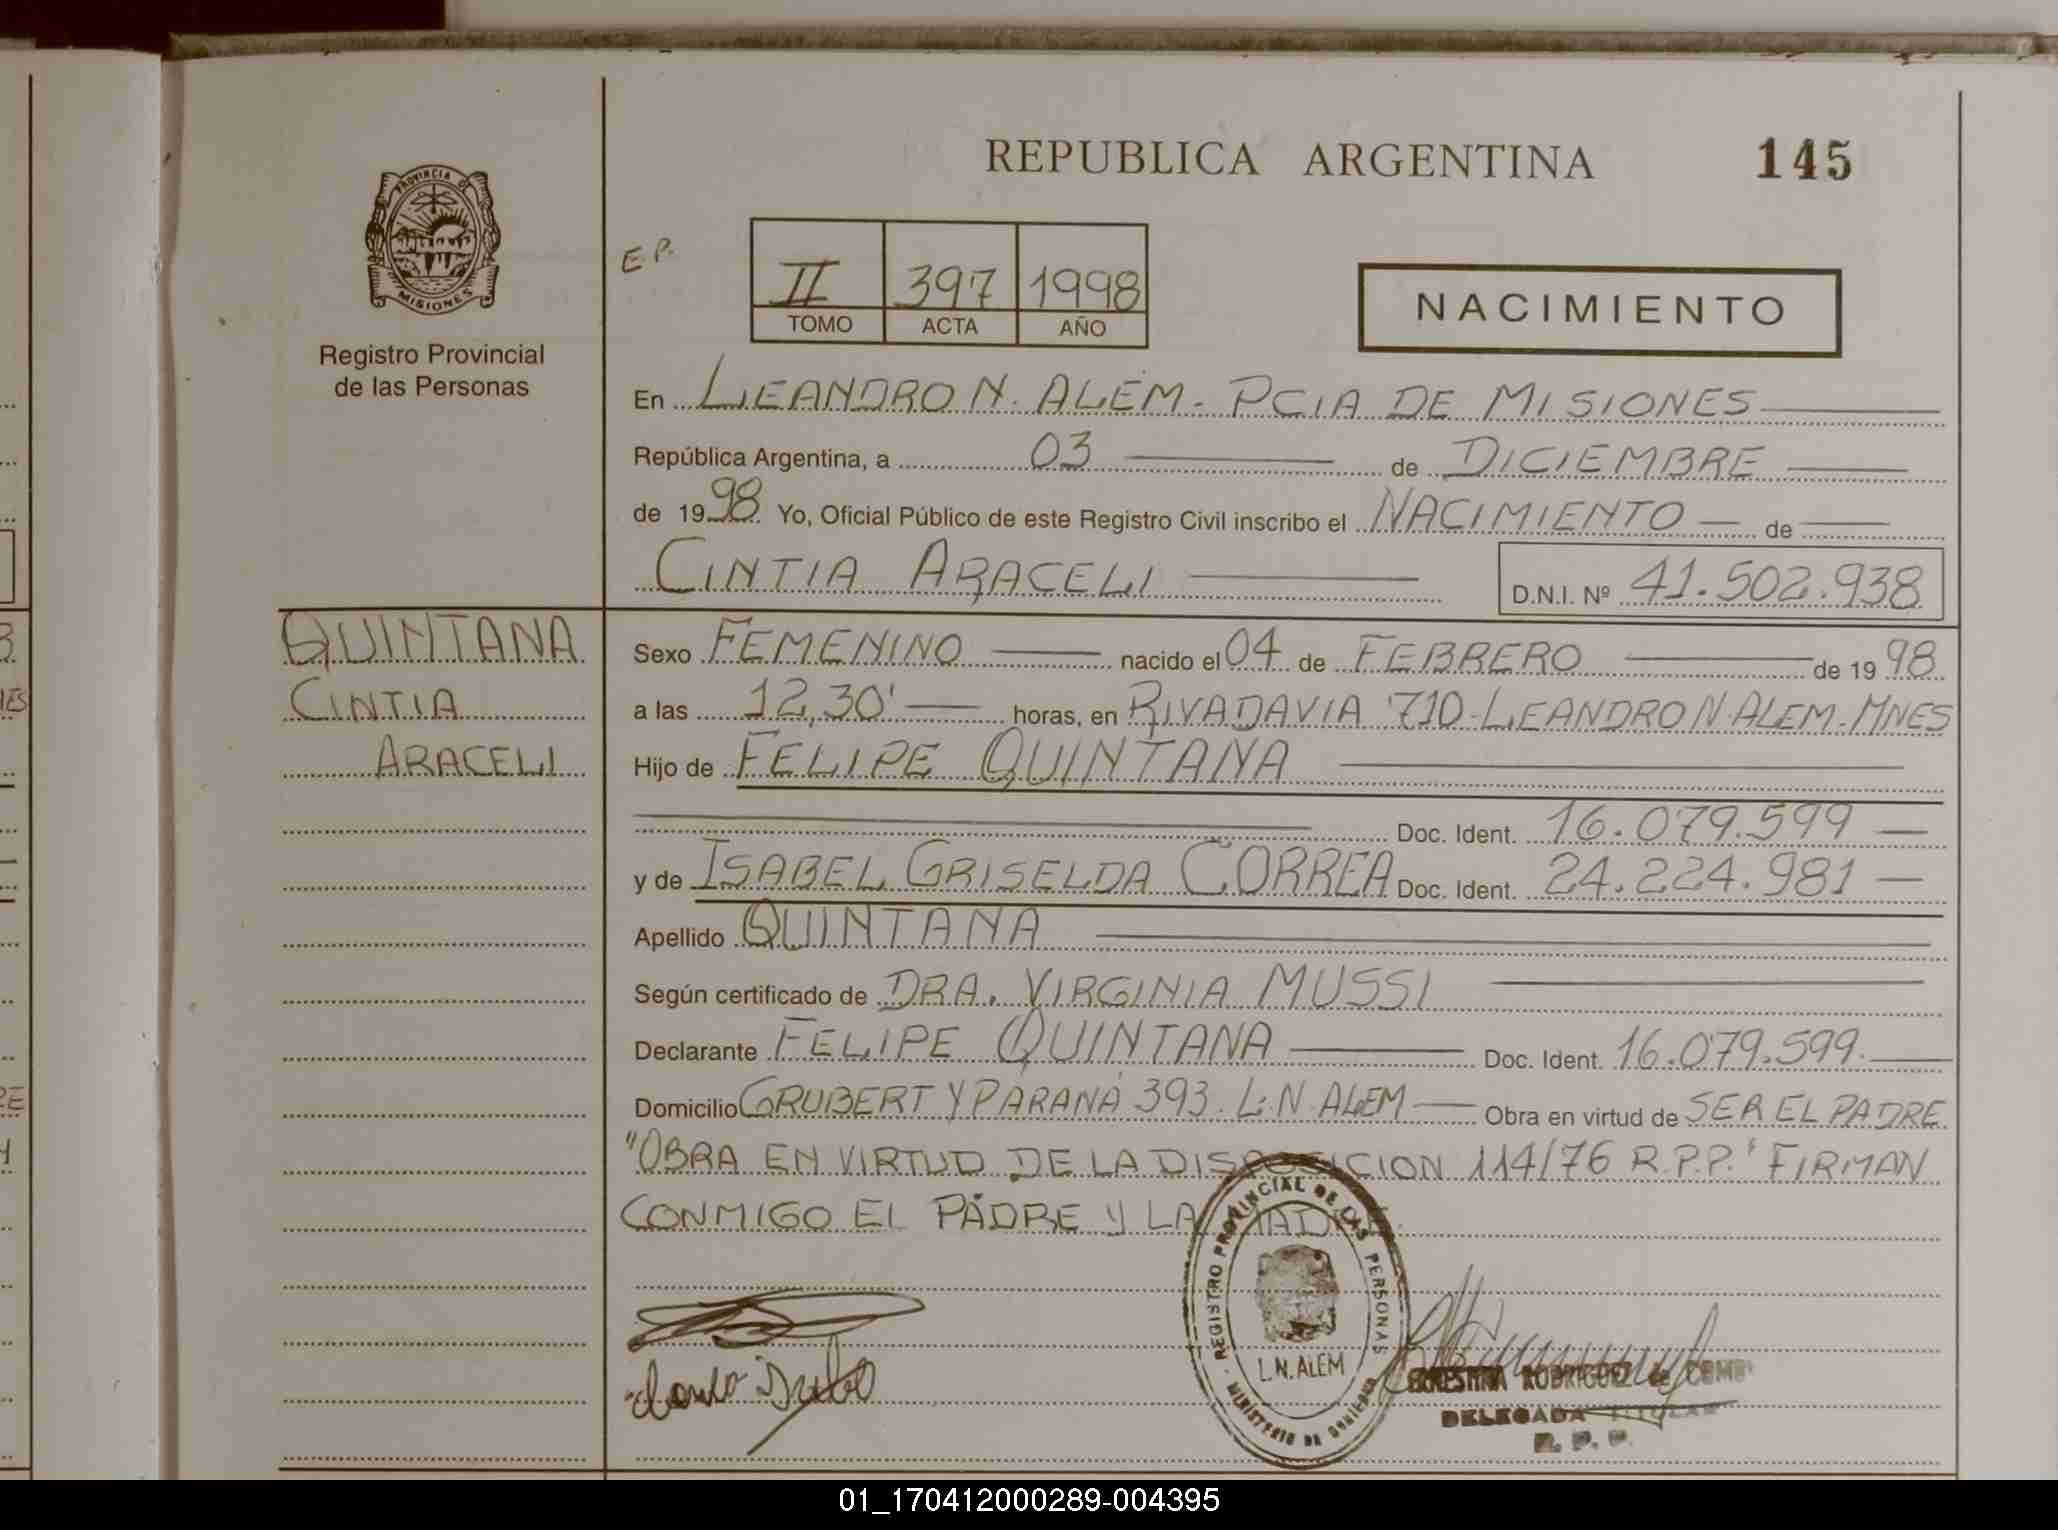 REPUBLICA ARGENTINA
145
PROVINCIA DE
MISIONES
Registro Provincial
de las Personas
E.P.
II 397 1998
TOMO ACTA AÑO
NACIMIENTO
En LEANDRO N. ALEM - PCIA DE MISIONES
República Argentina, a 03 de DICIEMBRE
de 1998 Yo, Oficial Público de este Registro Civil inscribo el NACIMIENTO de
CINTIA ARACELI
D.N.I. Nº 41.502.938
QUINTANA
CINTIA
ARACELI
Sexo FEMENINO nacido el 04 de FEBRERO de 1998
a las 12,30' horas, en RIVADAVIA 710-LEANDRO N ALEM-MNES
Hijo de FELIPE QUINTANA
Doc. Ident. 16.079.599
y de ISABEL GRISELDA CORREA Doc. Ident. 24.224.981
Apellido QUINTANA
Según certificado de DRA. VIRGINIA MUSSI
Declarante FELIPE QUINTANA Doc. Ident. 16.079.599
Domicilio GRUBERT Y PARANÁ 393. L.N. ALEM Obra en virtud de SER EL PADRE
"OBRA EN VIRTUD DE LA DISPOSICION 114/76 R.P.P." FIRMAN
CONMIGO EL PADRE Y LA MADRE.
REGISTRO PROVINCIAL DE LAS PERSONAS
MINISTERIO DE GOBIERNO
L.N. ALEM
RODRIGUEZ de
DELEGADA TITULAR
R. P. P.
01_170412000289-004395